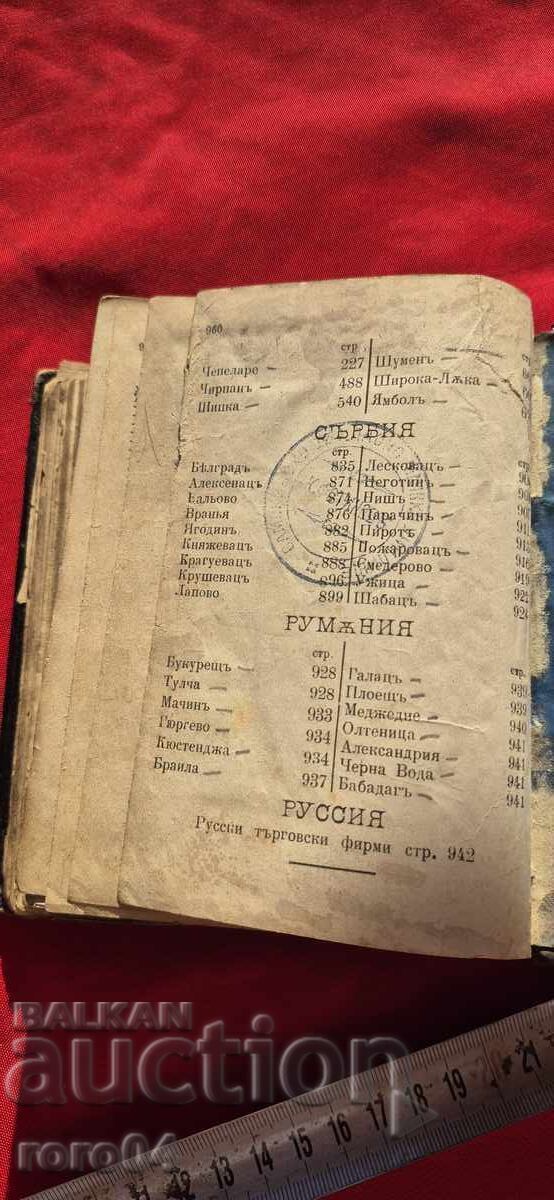 960
стр
Чепеларе — 227 Шуменъ —
Чирпанъ — 488 Широка-Лѫка —
Шипка — 540 Ямболъ —
СЪРБИЯ
стр.
Бѣлградъ 835 Лесковацъ —
Алексенацъ 871 Неготинъ —
Вальово 874 Нишъ — 907
Вранья 876 Парачинъ —
Ягодинъ 882 Пиротъ —
Княжевацъ 885 Пожаровацъ —
Крагуевацъ 888 Смедерово — 919
Крушевацъ 896 Ужица —
Лапово 899 Шабацъ — 924
РУМѪНИЯ
стр. стр.
Букурещъ — 928 Галацъ — 939
Тулча — 928 Плоещъ — 939
Мачинъ — 933 Меджедие — 940
Гюргево — 934 Олтеница — 941
Кюстенджа — 934 Александрия — 941
Браила — 937 Черна Вода — 941
Бабадагъ — 941
РУССИЯ
Русски търговски фирми стр. 942
BALKAN
auction
roro04
12 13 14 15 16 17 18 19 20 21